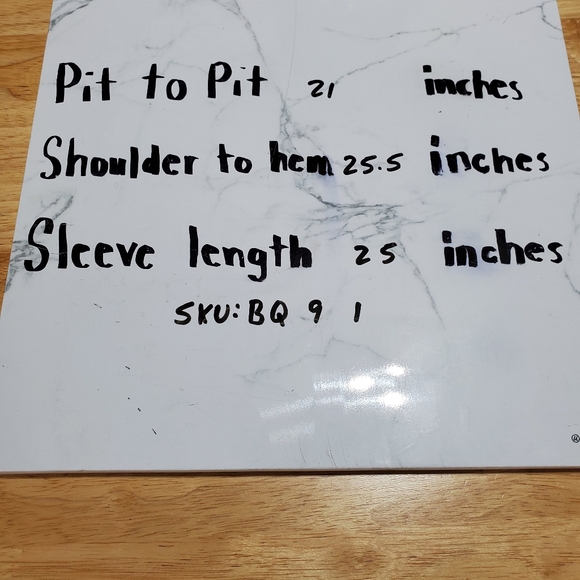 Pit to Pit 21 inches
Shoulder to hem 25.5 inches
Sleeve length 25 inches
SKU: BQ 9 1
®